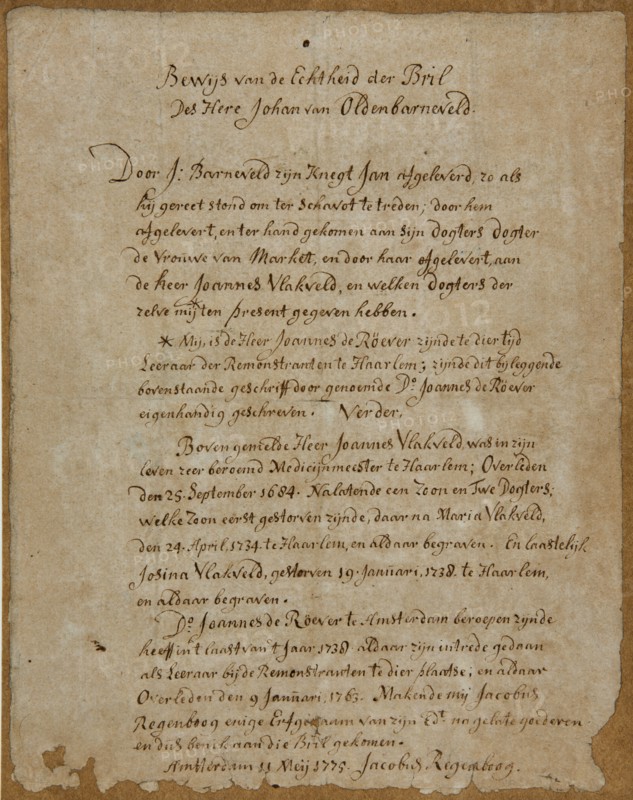 Bewijs van de Echtheid der Bril
Des Here Johan van Oldenbarneveld.
Door J: Barneveld zijn Knegt Jan afgeleverd, zo als
hij gereet stond om ter Schavot te treden; door hem
afgelevert, en ter hand gekomen aan sijn Dogters Dogter
de Vrouwe van Market, en door haar afgelevert, aan
de heer Joannes Vlakveld, en welken Dogters der
zelve mij ten present gegeven hebben.
* Mij, is de Heer Joannes de Röever zijnde te dier tijd
Leeraar der Remonstranten te Haarlem; zijnde dit bijleggende
bovenstaande geschrift door genoemde Do. Joannes de Röever
eigenhandig geschreven. Verder,
Boven gemelde Heer Joannes Vlakveld, was in zijn
leven zeer beroemd Medicijnmeester te Haarlem; Overleden
den 25. September 1684. Nalatende een Zoon en Twe Dogters;
welke Zoon eerst gestorven zijnde, daar na Maria Vlakveld,
den 24. April, 1734. te Haarlem, en aldaar begraven. En laastelijk
Josina Vlakveld, gestorven 19. Januari, 1738. te Haarlem,
en aldaar begraven.
Do. Joannes de Röever te Amsterdam beroepen zijnde
heeft in't laast van't Jaar 1738 aldaar zijn intrede gedaan
als Leeraar bij de Remonstranten te dier plaatse; en aldaar
Overleden den 9 Januari, 1763. Makende mij Jacobus
Regenboog enige Erfgenaam van zijn Ed. nagelate goederen
en dus ben ik aan die Bril gekomen.
Amsterdam 11 Meij 1775. Jacobus Regenboog.